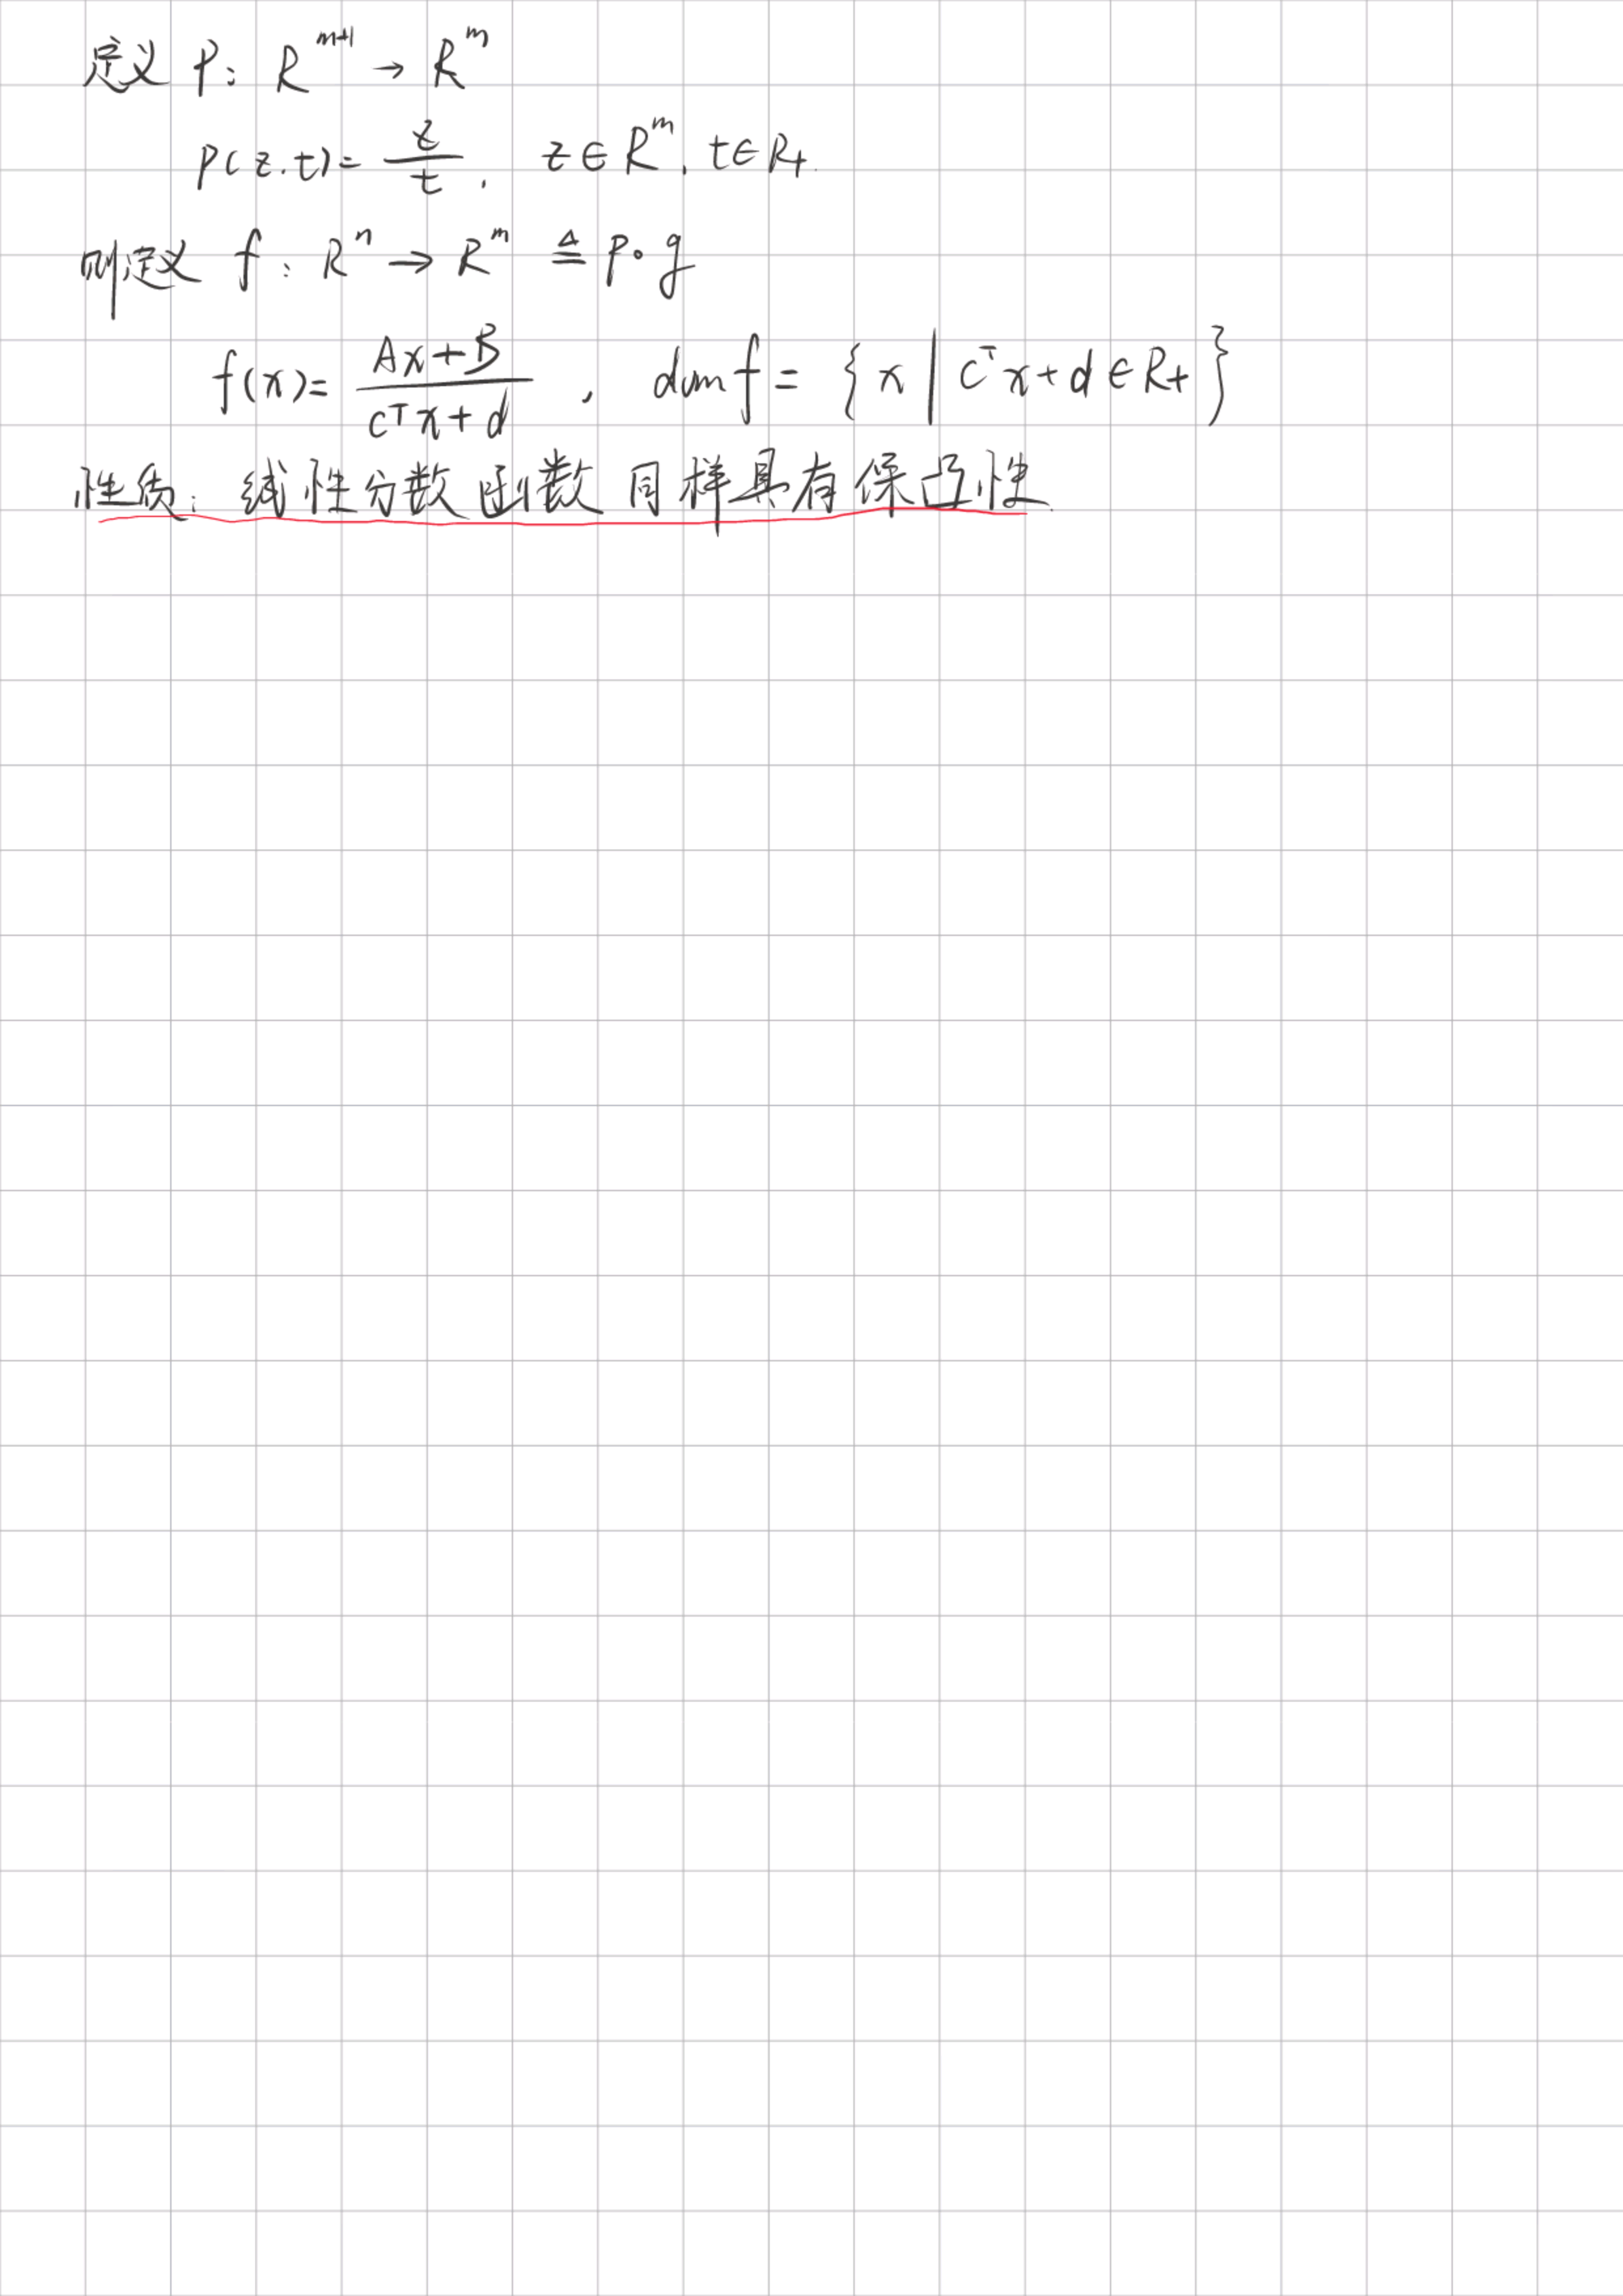 定义 P: R^{m+1} → R^m
P(z,t)= z/t, z∈R^m, t∈R_+.
则定义 f: R^n → R^m ≜ P∘g
f(x)= (Ax+B)/(c^T x+d), domf = {x | c^T x+d∈R_+}
性质: 线性分数函数同样具有保凸性.